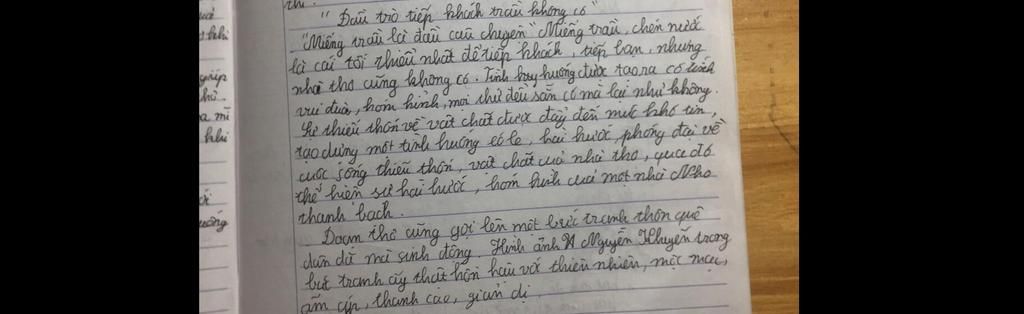 thi.
"Đầu trò tiếp khách trầu không có"
"Miếng trầu là đầu câu chuyện" Miếng trầu, chén nước
là cái tối thiểu nhất để tiếp khách, tiếp bạn, nhưng
nhà thơ cũng không có. Tình huy huống được tạo ra có tính
vui đùa, hóm hỉnh, mọi thứ đều sẵn có mà lại như không.
Sự thiếu thốn về vật chất được đẩy đến mức khó tin,
tạo dựng một tình huống éo le, hài hước, phóng đại về
cuộc sống thiếu thốn, vật chất của nhà thơ, qua đó
thể hiện sự hài hước, hóm hỉnh của một nhà Nho
thanh bạch.
Đoạn thơ cũng gợi lên một bức tranh thôn quê
dân dã mà sinh động. Hình ảnh Nguyễn Khuyến trong
bức tranh ấy thật hồn hậu với thiên nhiên, mộc mạc,
ấm cúp, thanh cao, giản dị
khi
giúp
a mi
khi